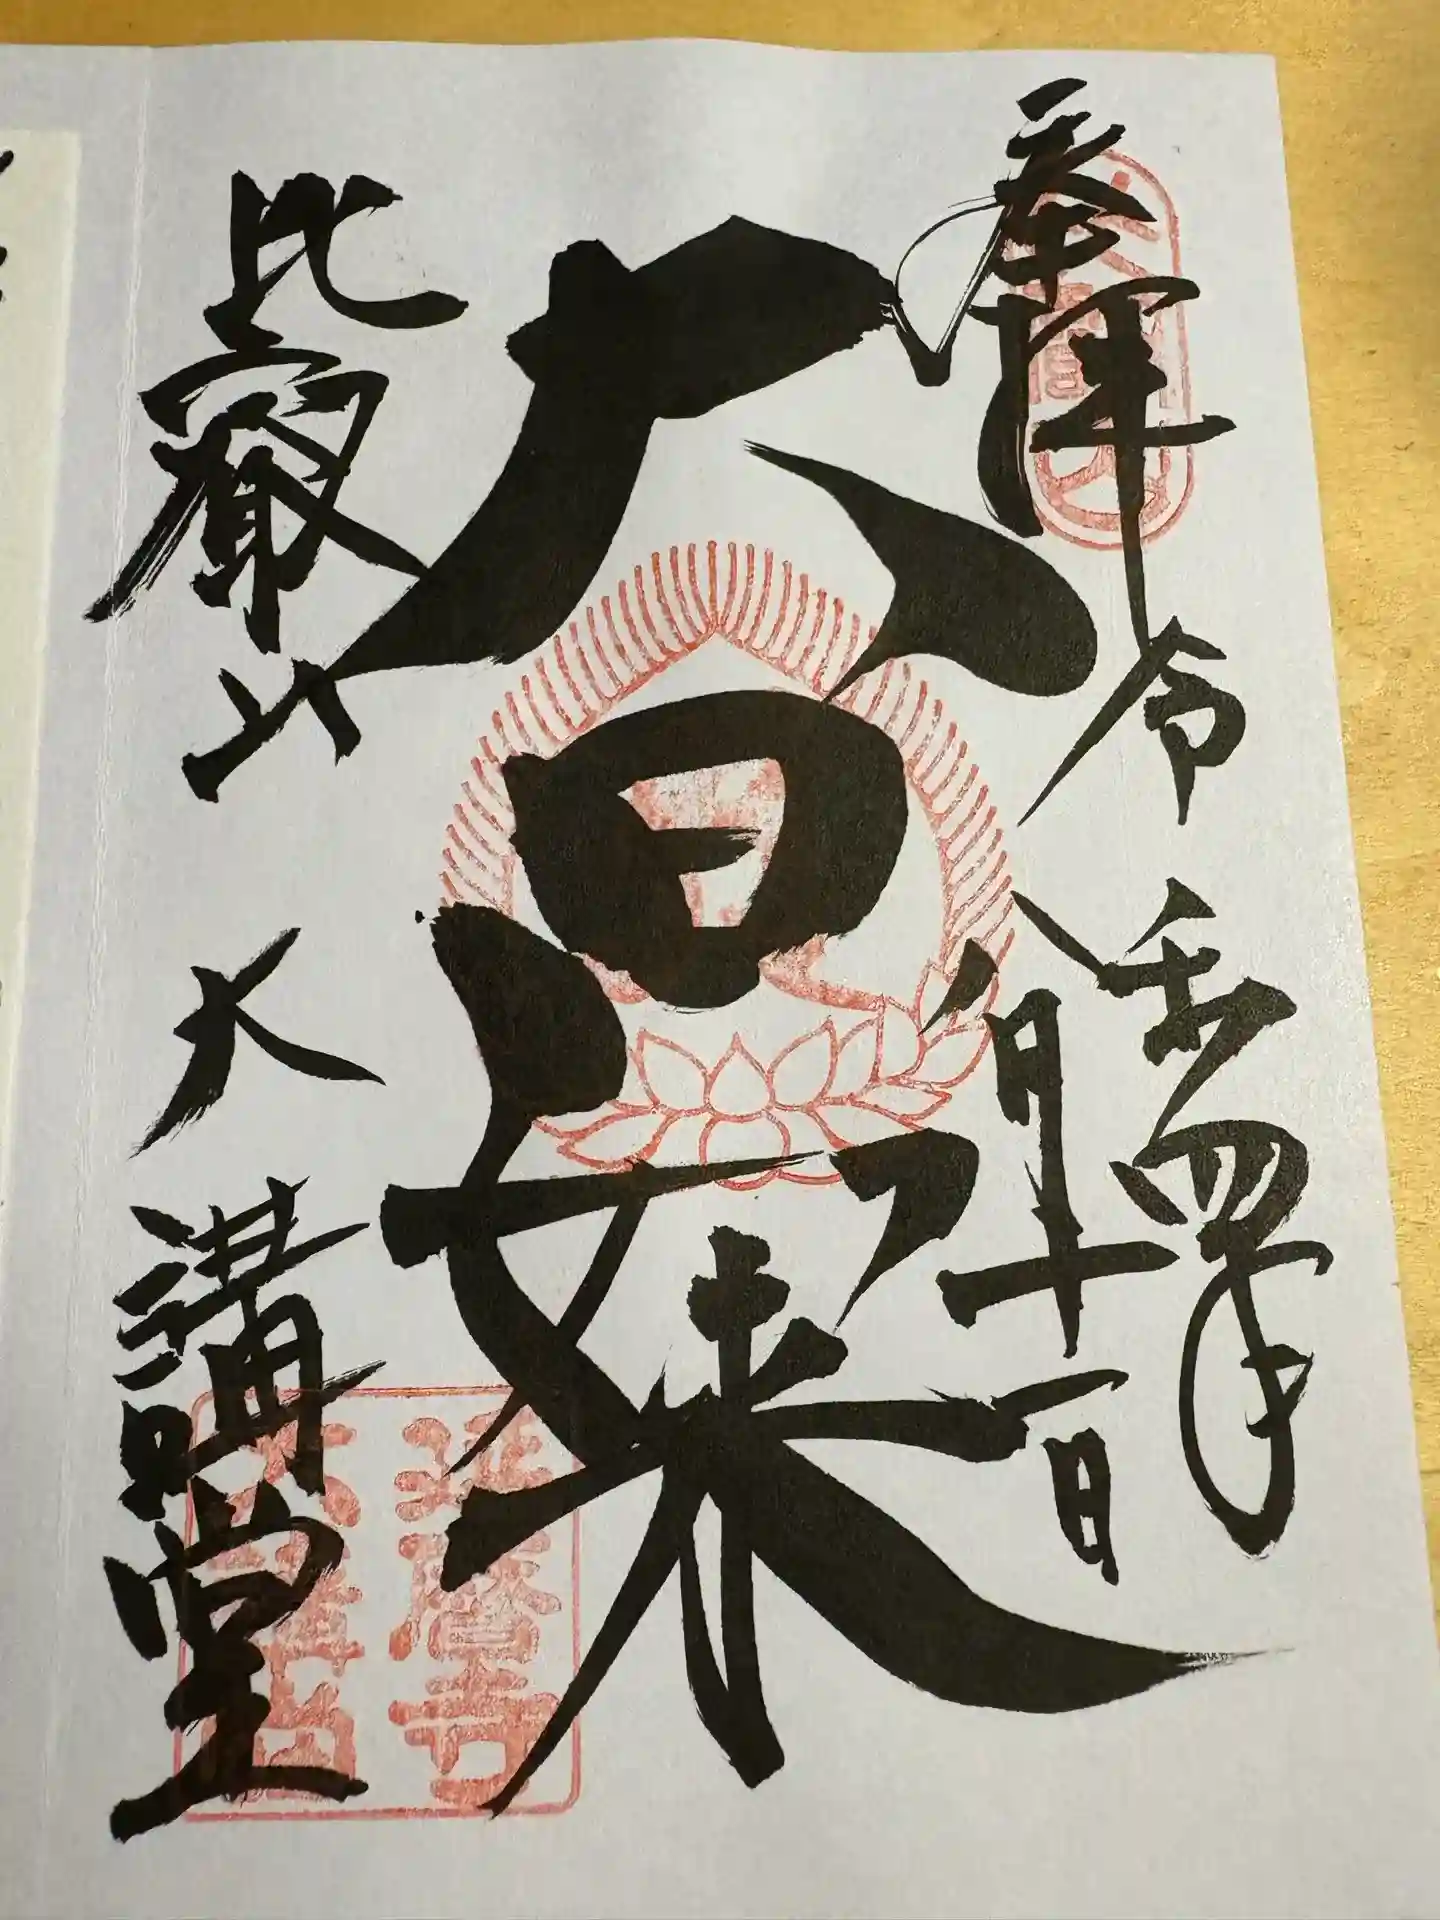 奉拝
令和四年
八月十一日
大日如来
比叡山
大講堂
延暦寺